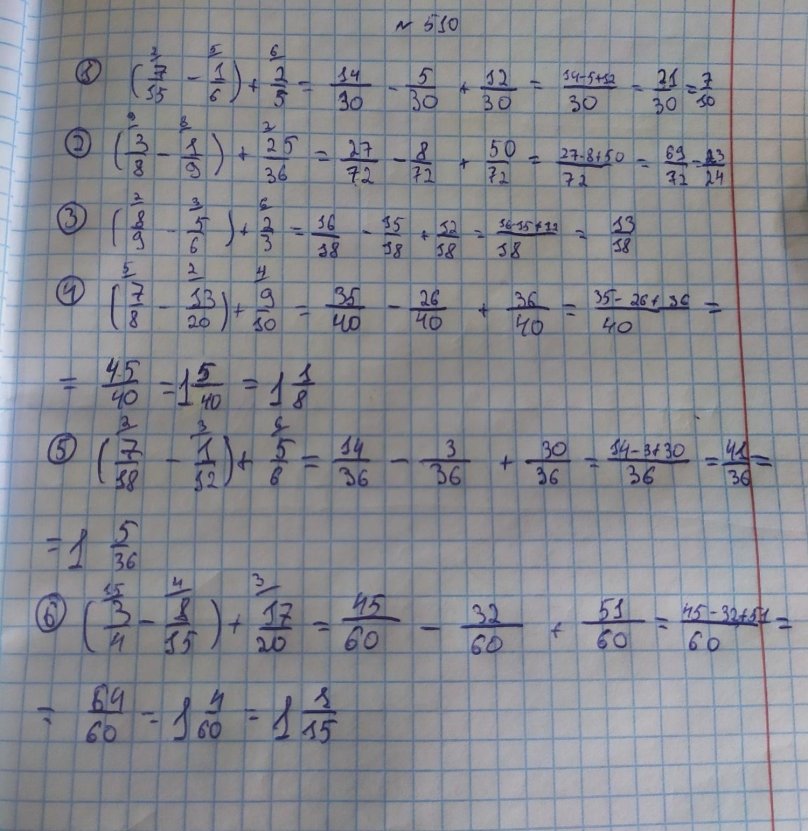 № 510
① (7/15 - 1/6) + 2/5 = 14/30 - 5/30 + 12/30 = 14-5+12/30 = 21/30 = 7/10
② (3/8 - 1/9) + 25/36 = 27/72 - 8/72 + 50/72 = 27-8+50/72 = 69/72 = 23/24
③ (8/9 - 5/6) + 2/3 = 16/18 - 15/18 + 12/18 = 16-15+12/18 = 13/18
④ (7/8 - 13/20) + 9/10 = 35/40 - 26/40 + 36/40 = 35-26+36/40 =
= 45/40 = 1 5/40 = 1 1/8
⑤ (7/18 - 1/12) + 5/6 = 14/36 - 3/36 + 30/36 = 14-3+30/36 = 41/36 =
= 1 5/36
⑥ (3/4 - 8/15) + 17/20 = 45/60 - 32/60 + 51/60 = 45-32+51/60 =
= 64/60 = 1 4/60 = 1 1/15